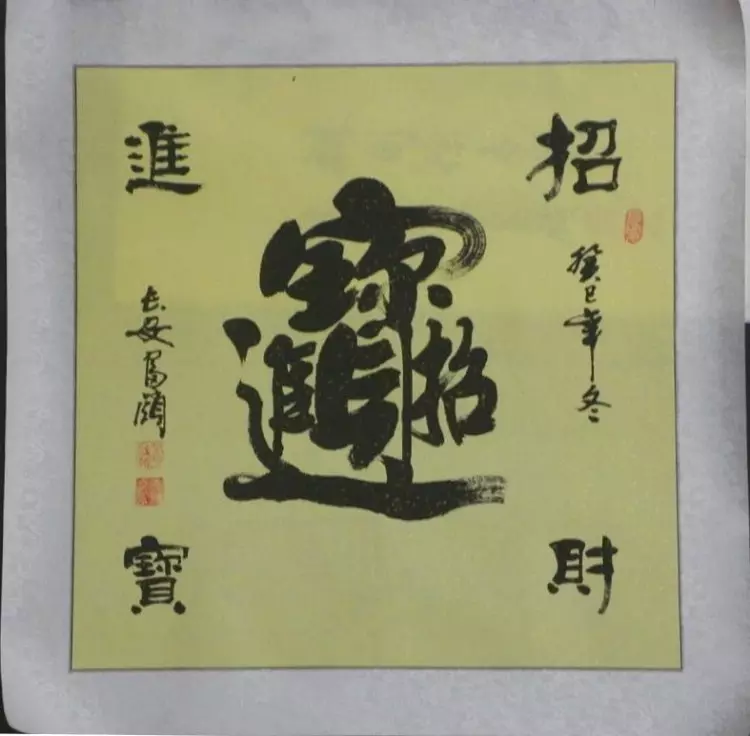 招
癸巳年冬
財
招財進寶
進
长安
寶